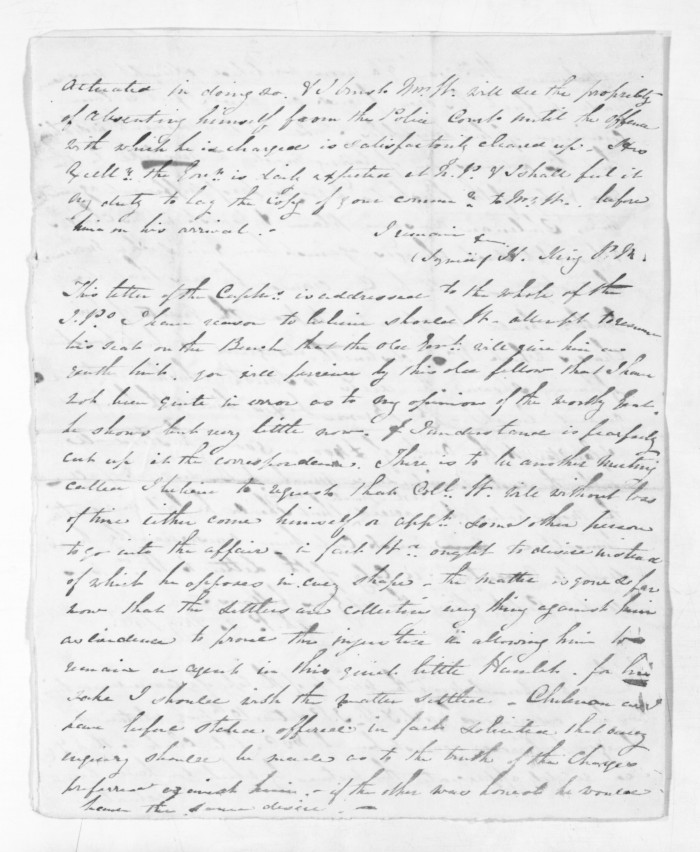 actuated in doing so. & I trust Mr. H. will see the propriety
of absenting himself from the Police Court until the offence
with which he is charged is satisfactorily cleared up. His
Excelly. the Govr. is daily expected at N.P. & I shall feel it
my duty to lay the Copy of your commn. to Mr. H. before
him on his arrival. - I remain &
(Signed) H. King P.M.
This letter of the Captns. is addressed to the whole of the
J.Ps I have reason to believe should H. attempt to resume
his seat on the Bench that the old Gent. will give him an
you will perceive by this old fellow that I have
not been quite in error as to my opinion of the worthy Gent.
he shows but very little now. & I understand is perfectly
cut up at the correspondence. There is to be another Meeting
called I believe to request that Coll. W. will without loss
of time either come himself or appt. some other person
to go into the affair - in fact H. ought to desire instead
of which he opposes in every shape - the matter is gone so far
now that the settlers are collecting every thing against him
as evidence to prove the injustice in allowing him to
remain as agent in this quiet little Hamlet. for his
sake I should wish the matter settled - Chilman as I
have before stated offered in fact solicited that every
inquiry should be made as to the truth of the Charges
preferred against him. - if the other was honest he would
have the same desire. -